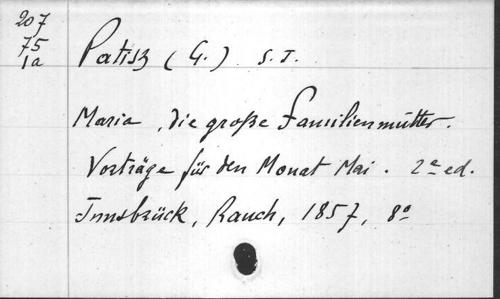 207
75
1a
Patisz (G.) S. J.
Maria, die große Familienmutter.
Vorträge für den Monat Mai. 2e ed.
Innsbrück, Rauch, 1857, 8o